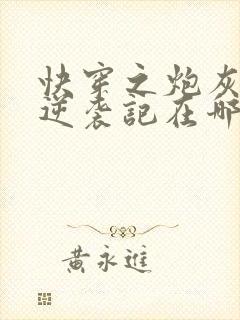 快穿之炮灰
逆袭記在哪
黃永進